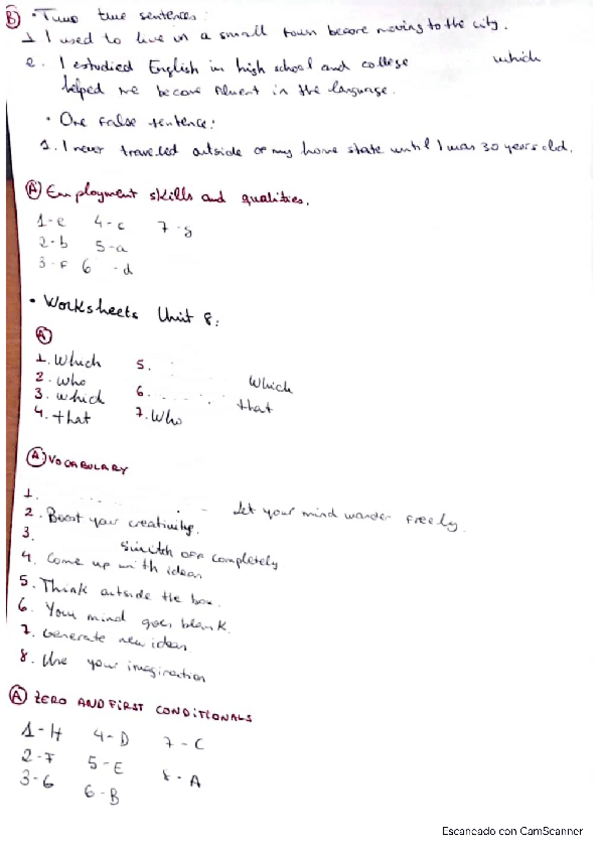 B) • Tuwo true sentences:
1 I used to live in a small town before moving to the city.
2. I estudied English in high school and college which
helped me become fluent in the language.
• One false sentence:
1. I never travelled outside of my home state until I was 30 years old.
A) Employment skills and qualities.
1-e 4-c 7-g
2-b 5-a
3-f 6 -d
• Worksheets Unit 8:
A)
1. Which 5.
2. who Which
3. which 6. that
4. that 7. Who
A) VOCABULARY
1. let your mind wander freely.
2. Boost your creativity.
3. Switch off completely
4. Come up with ideas
5. Think outside the box.
6. Your mind goes blank.
7. Generate new ideas
8. Use your imagination
A) ZERO AND FIRST CONDITIONALS
1-H 4-D 7-C
2-F 5-E 8-A
3-G 6-B
Escaneado con CamScanner